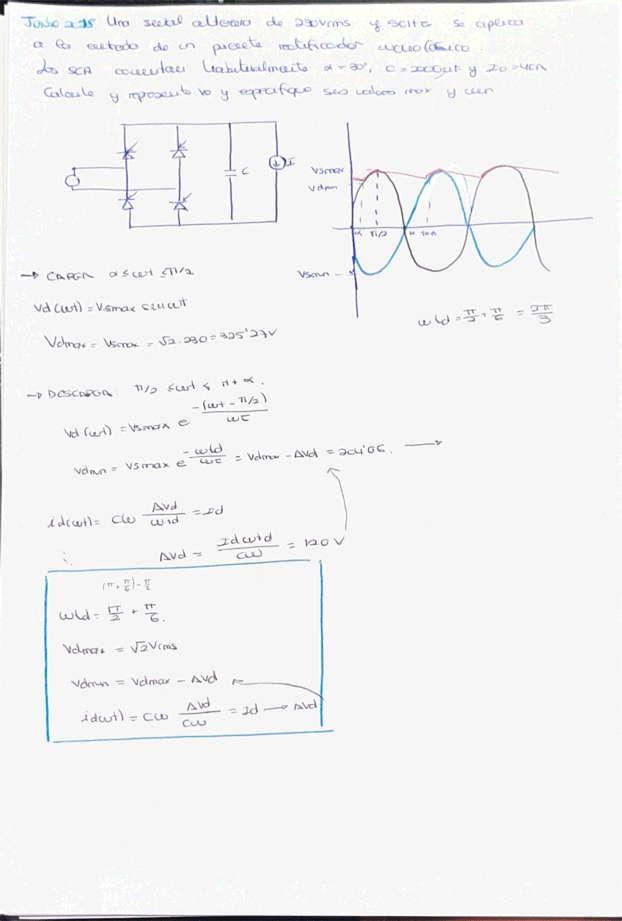 JUNIO 2018 Una señal alterna de 230Vrms y 50Hz se aplica
a la entrada de un puente rectificador monofásico
Los SCR conmutan habitualmente α=30º, C=2000μF y Io=4CA
Calcule y represente Vo y especifique sus valores max y min
C
I
Vsmax
Vdmin
α π/2 π π+α
Vsmin
→ CARGA α≤ωt≤π/2
Vd(ωt)=Vsmax sen ωt
Vdmax = Vsmax = √2·230=325'27V
ωtd = π/2 + π/6 = 2π/3
→ DESCARGA: π/2 ≤ωt≤ π+α.
Vd(ωt) = Vsmax e^(-(ωt-π/2)/ωτ)
Vdmin = Vsmax e^(-ωtd/ωτ) = Vdmax - ΔVd = 204'06.
id(ωt) = Cω ΔVd/ωtd = Id
∴ ΔVd = Idωtd/Cω = 120V
(π+π/6)-π/2
ωtd = π/2 + π/6.
Vdmax = √2Vrms
Vdmin = Vdmax - ΔVd
id(ωt) = Cω ΔVd/Cω = Id → ΔVd